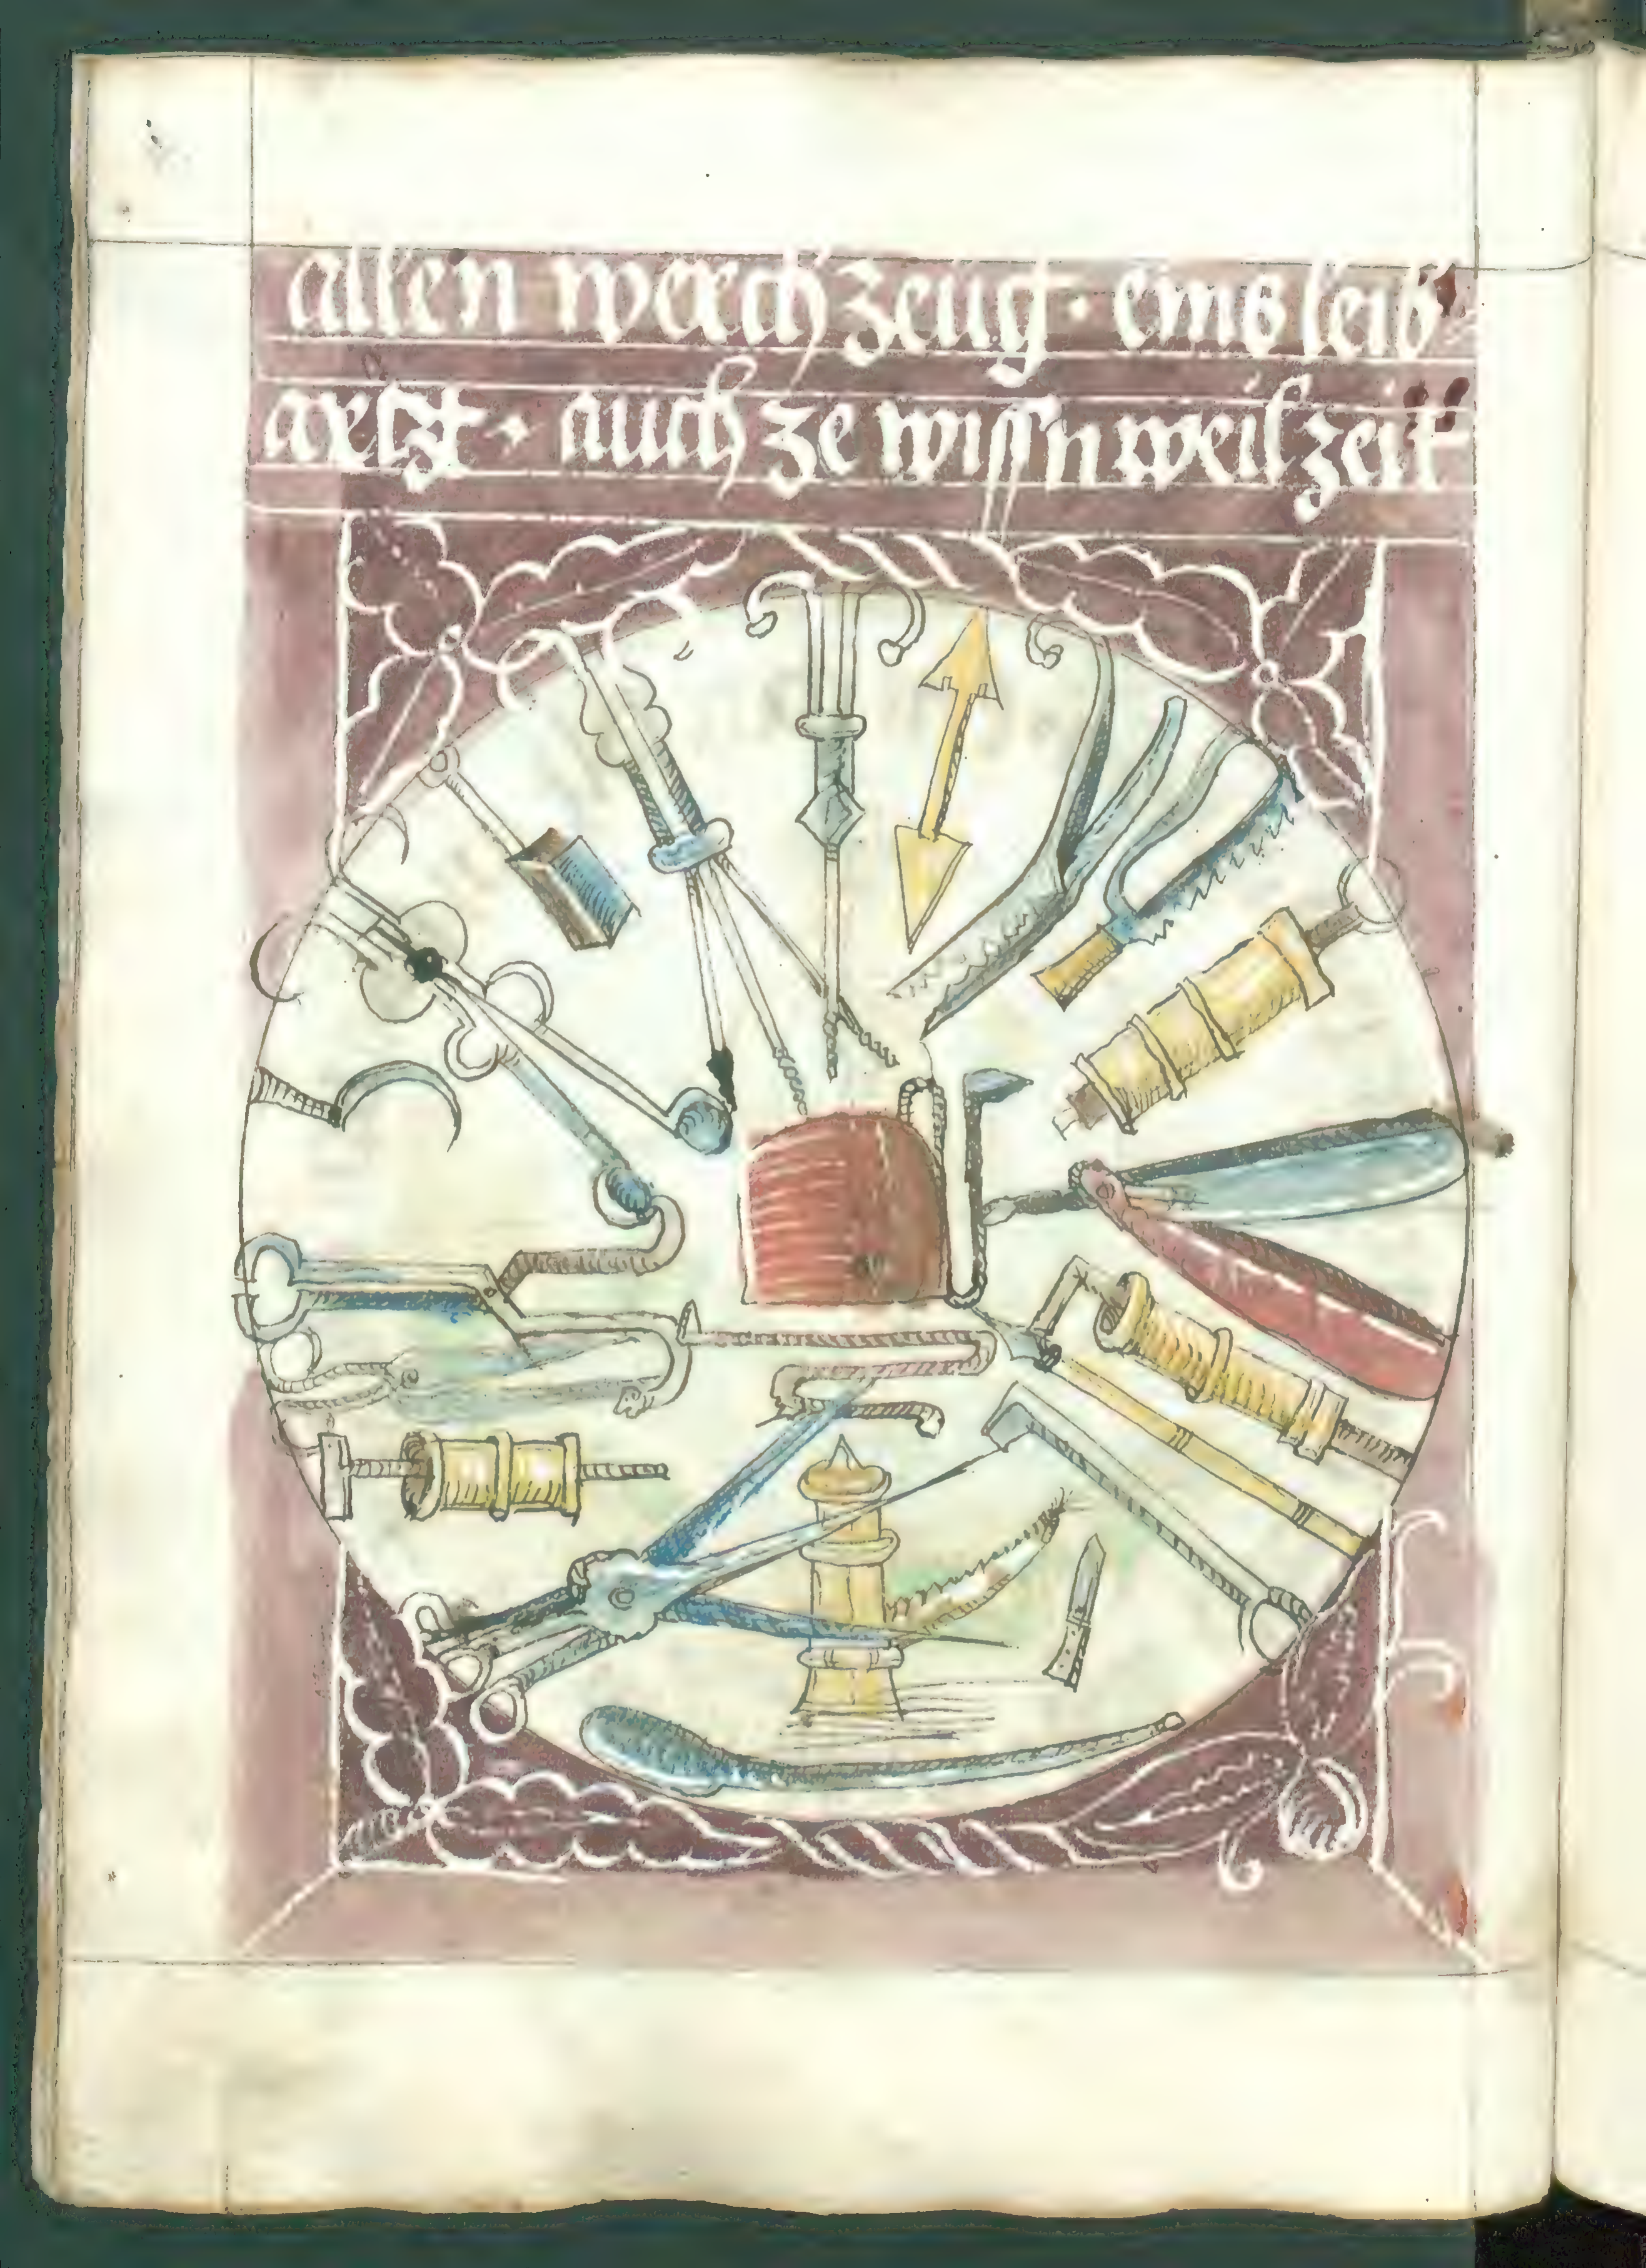 allen werch zeug · eins leib
artzt · auch ze wissn weil zeit